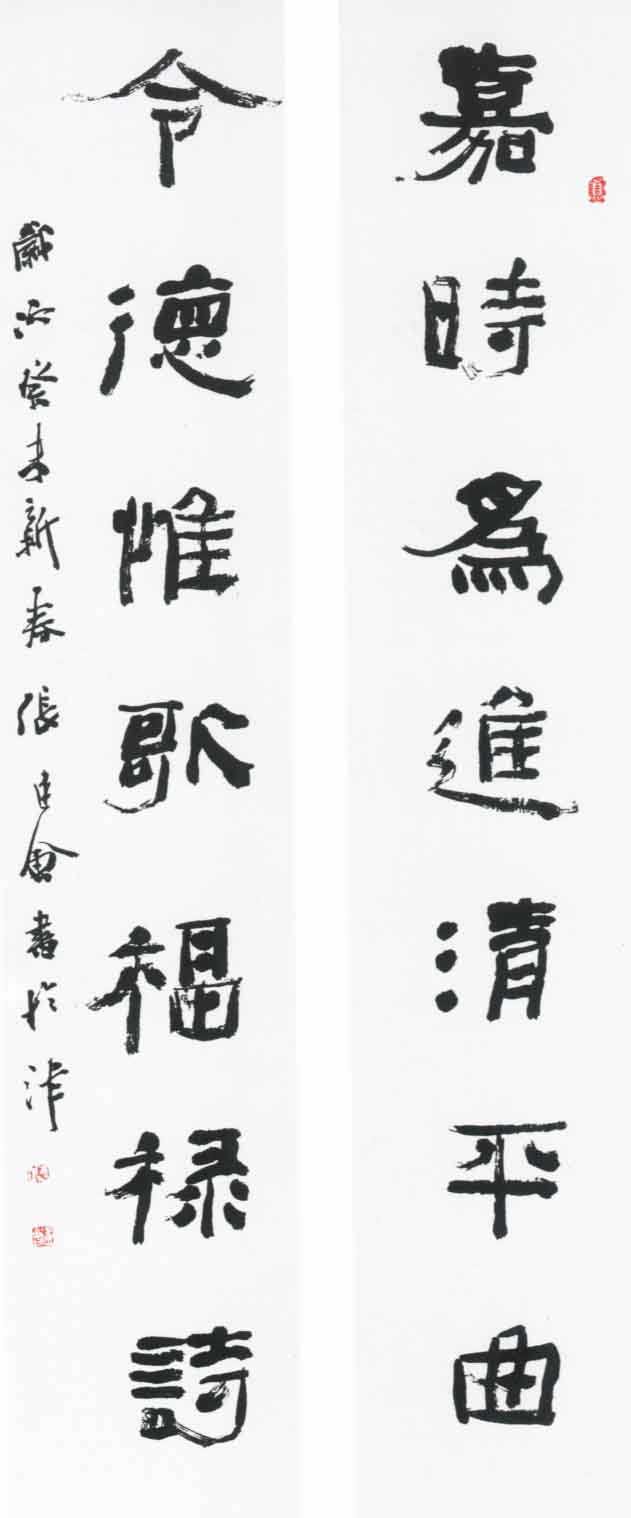 嘉時為進清平曲
令德惟歌福禄詩
歲次癸未新春張建會書於津